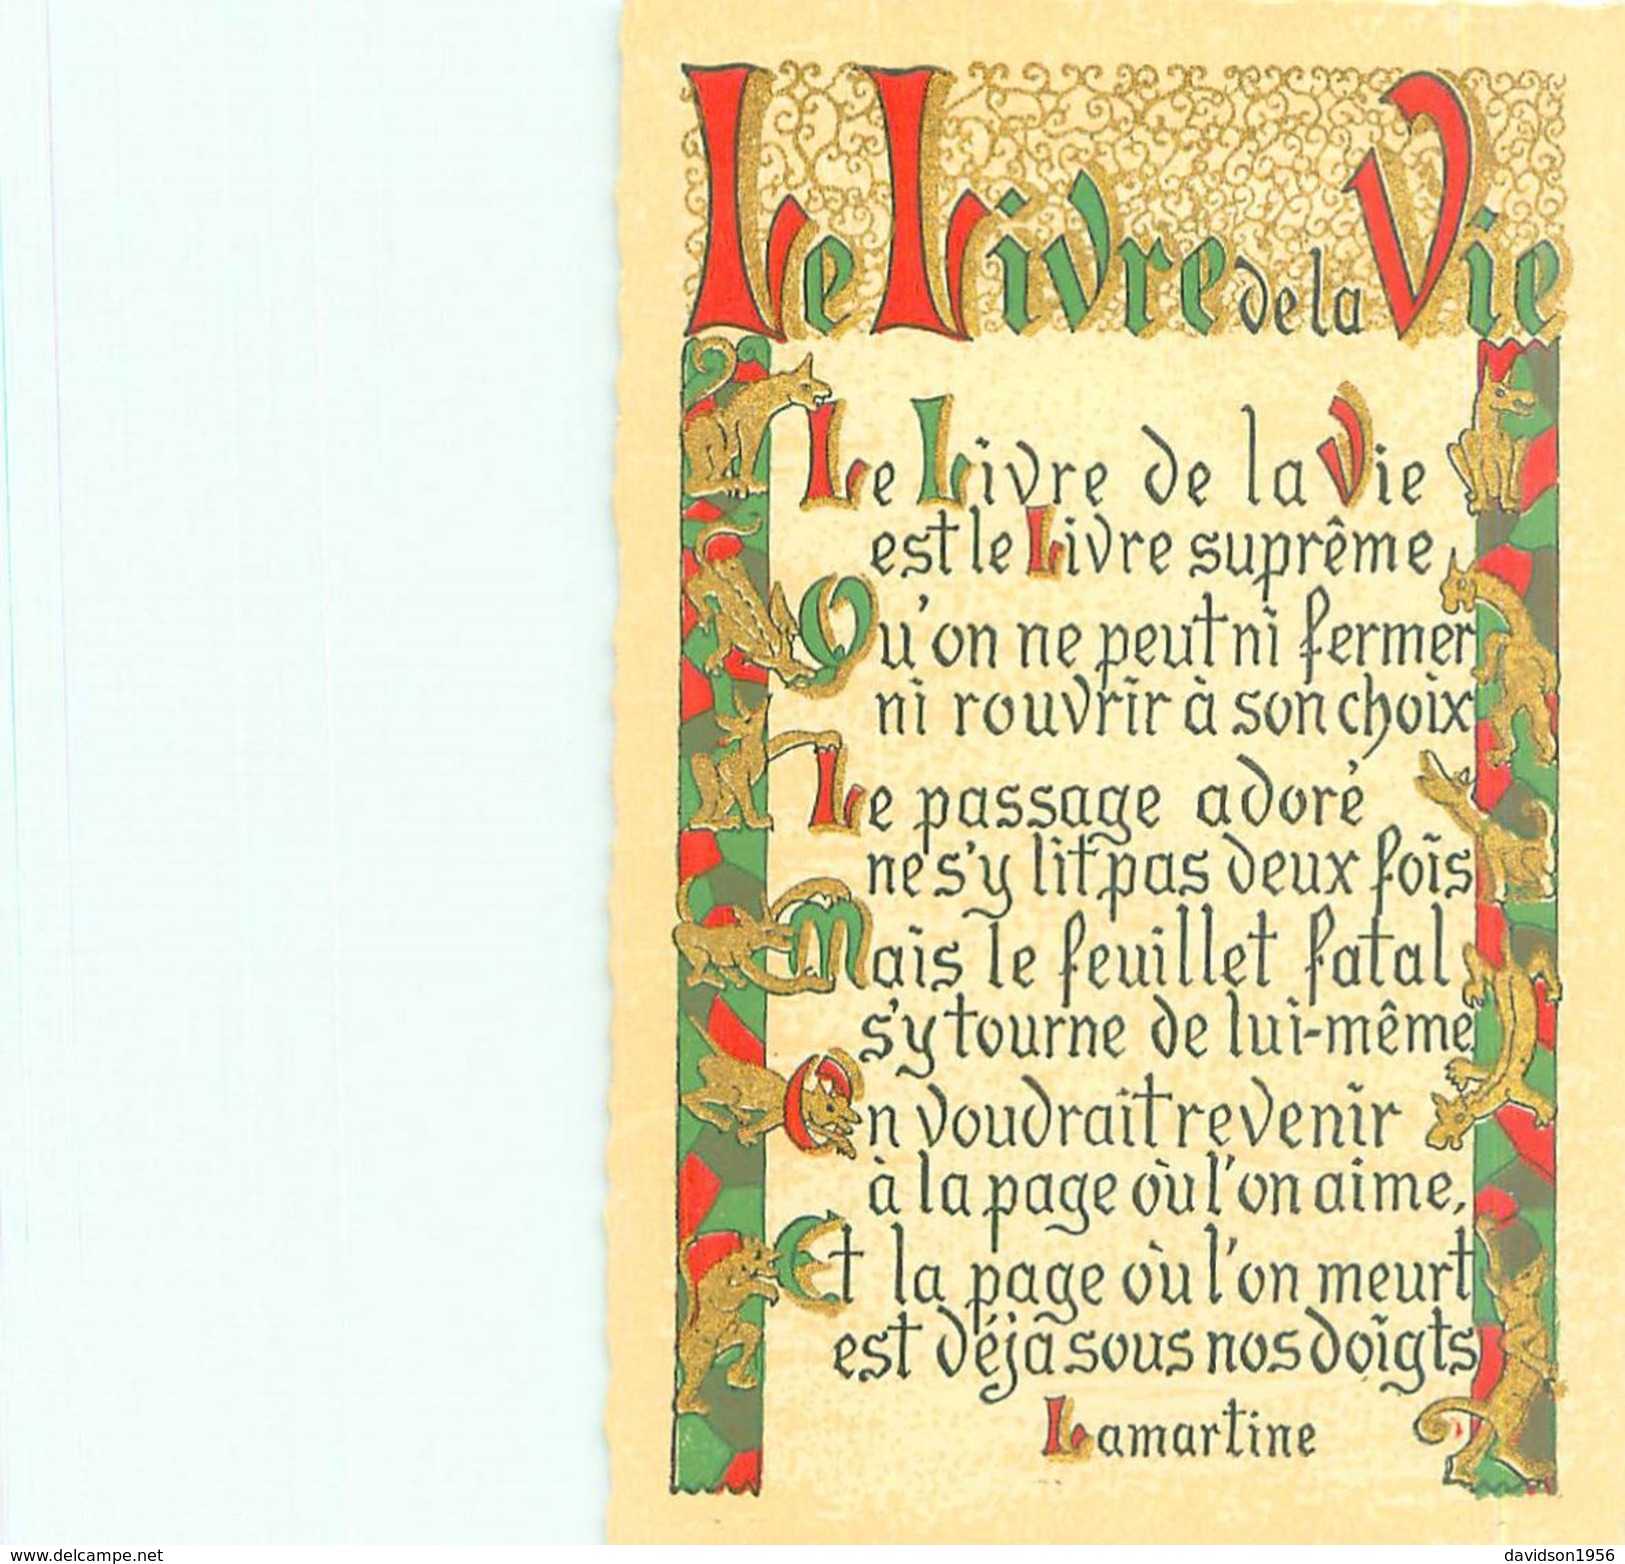 Le Livre de la Vie
Le Livre de la Vie
est le Livre suprême
Qu'on ne peut ni fermer
ni rouvrir à son choix
Le passage adoré
ne s'y lit pas deux fois
Mais le feuillet fatal
s'y tourne de lui-même
On voudrait revenir
à la page où l'on aime,
Et la page où l'on meurt
est déjà sous nos doigts
Lamartine
www.delcampe.net
davidson1956